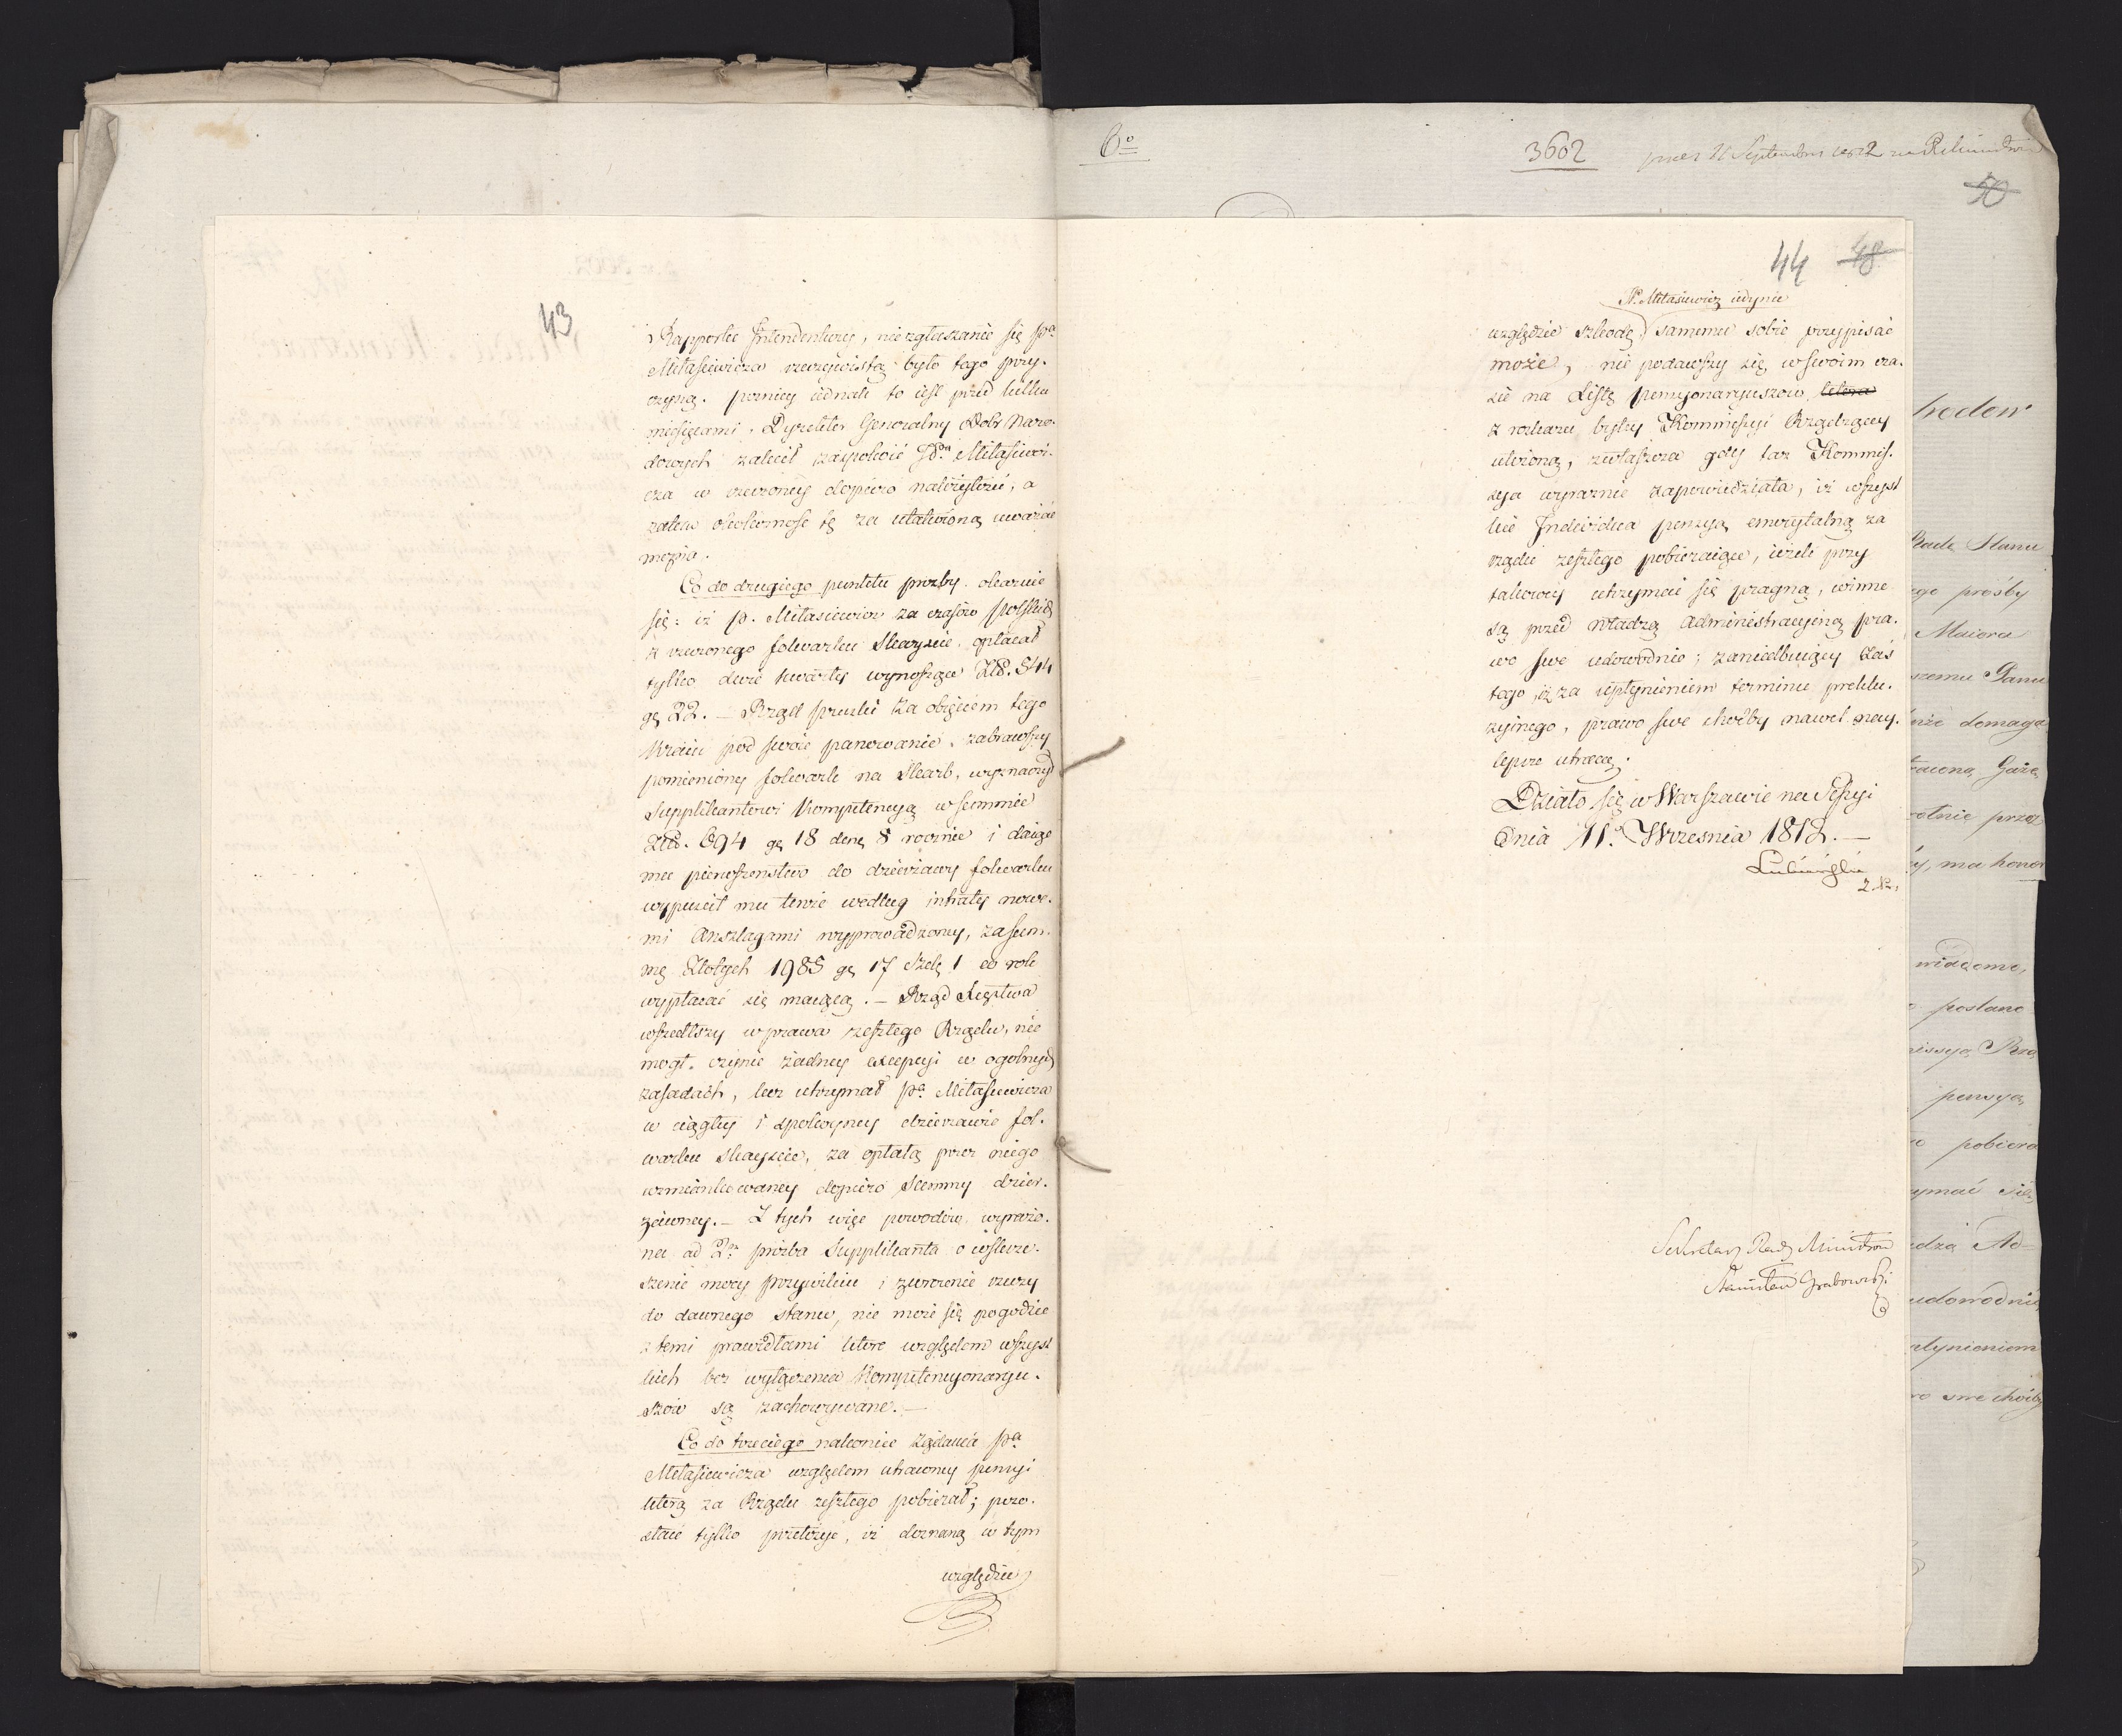 43
i Rapporcie Intendentury, niezgłaszanie się Pa
Miłasiewicza rzeczywistą było tego przy-
czyną. pozniey iednak to iest przed kilku
miesięcami, Dyrektor Generalny Dobr Naro-
dowych zalecił zaspokoić JPa Miłasiewi-
cza w rzeczoney dopiero należytości, a
zatem okoliczność tę za ułatwioną uważać
można.
Co do drugiego punktu prozby okazuie
się: iż P. Miłasiewicz za czasów Polskich
z rzeczonego folwarku Skayscie opłacał
tylko dwie kwarty wynoszące Zło. 544
gr 22. — Rząd pruski za obięciem tego
Kraiu pod swoie panowanie, zabrawszy
pomieniony folwark na Skarb, wyznaczył
Supplikantowi Kompetencyą w summie
Zło. 694 gr 18 den. 8 rocznie i daiąc
mu pierwszenstwo do dzierżawy folwarku
wypuscił mu tenże według intraty nowe-
mi Anszlagami wyprowadzoney, za sum-
mę Złotych 1985 gr 17 Szelg 1 co rok
wypłacać się maiącą. — Rząd Xięstwa
wszedłszy w prawa zeszłego Rządu, nie
mogł czynić żadney excepcyi w ogolnych
zasadach, lecz utrzymał Pa Miłasiewicza
w ciągłey i spokoyney dzierzawie fol-
warku Skayscie, za opłatą przez niego
wzmiankowaney dopiero Summy dzier-
żawney. — Z tych więc powodów, wyrażo-
na ad 2m prozba Supplikanta o wskrze-
szenie mocy przywileiu i zwrocenie rzeczy
do dawnego stanu, nie może się pogodzić
z temi prawidłami które względem wszyst
kich bez wyłączenia Kompetencyonaryu-
szów są zachowywane. —
Co do trzeciego nakoniec żądania Pa
Miłasiewicza względem utraconey pensyi
którą za Rządu zeszłego pobierał; pozo-
staie tylko przełożyć, iż doznaną w tym
względzie
6o
3602
50
44 48
P. Miłasiewicz iedynie
względzie szkodę samemu sobie przypisać
może, nie podawszy się w swoim cza-
sie na Listę pensyonaryuszów, która
z rozkazu byłey Kommissyi Rządzącey
ułożoną, zwłaszcza gdy taż Kommis-
sya wyraznie zapowiedziała, iż wszyst
kie Individua pensyą emerytalną za
rządu zeszłego pobieraiące, ieżeli przy
takowey utrzymać się pragną, winne
są przed władzą Administracyiną pra-
wo swe udowodnić; zaniedbuiący zaś
tego, iż za upłynieniem terminu preklu-
zyinego, prawo swe choćby nawet nay-
lepsze utracą.
Działo się w Warszawie na Sessyi
dnia 11. Wrzesnia 1812. —
Lubieński
Sekretarz Rady Ministrów
Stanisław Grabowski
Rade Stanu
prośby
Maiora
Panu
domaga
Gaże
ma honor
wiadomo,
postano
pensya
pobiera
Ad-
udowodnić
swe choćby